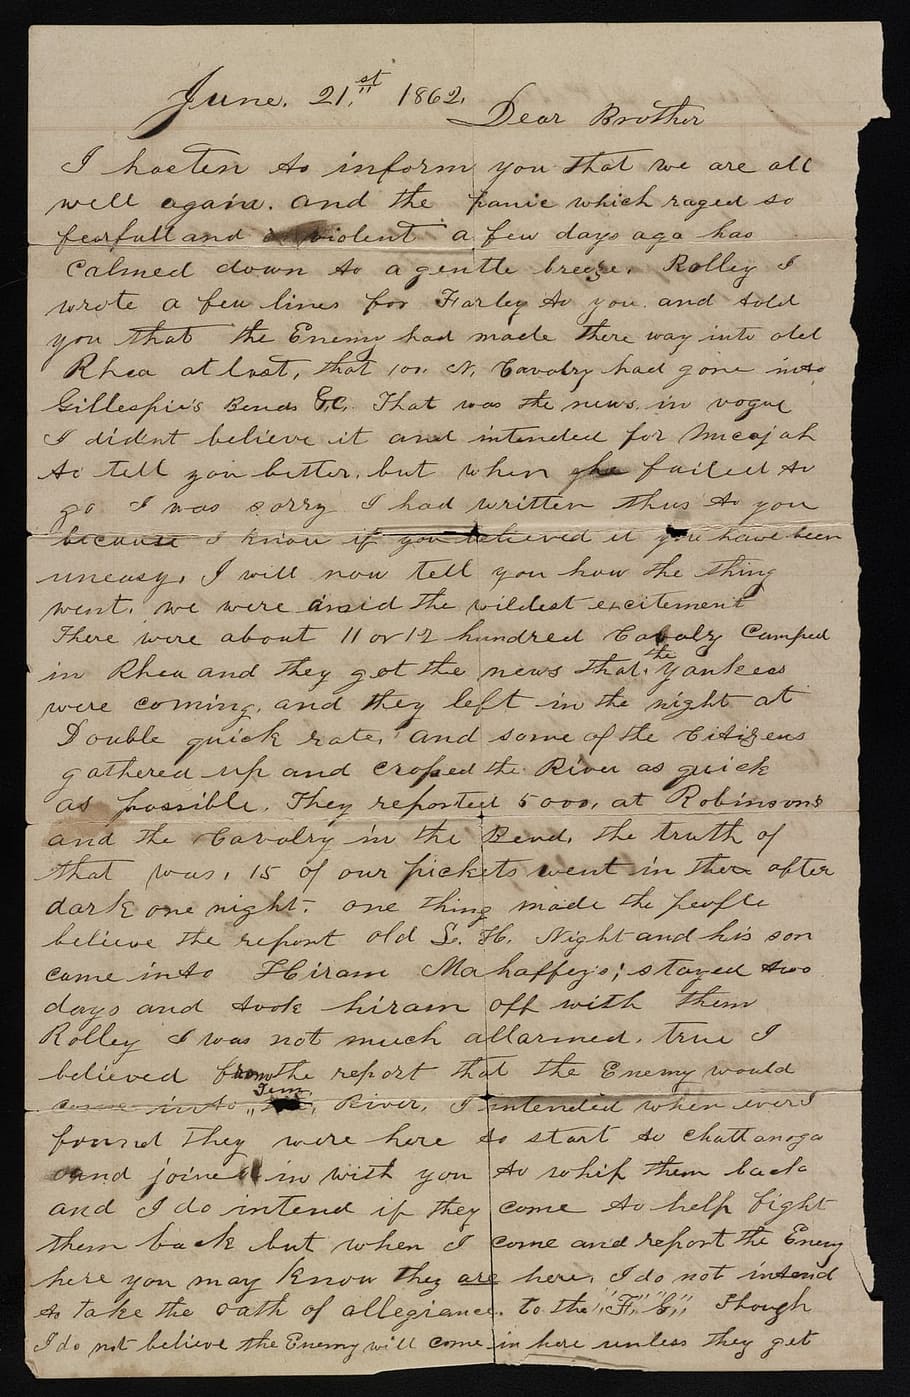 June. 21.st 1862.
Dear Brother
I hasten to inform you that we are all
well again. and the panic which raged so
fearfull and violent a few days ago has
calmed down to a gentle breeze. Rolley I
wrote a few lines for Farley to you and told
you that the Enemy had made there way into old
Rhea at last, that 100. N. Cavalry had gone into
Gillespie's Bends &C. That was the news in vogue
I didnt believe it and intended for Micajah
to tell you better. but when he failed to
go I was sorry I had written thus to you
because I know if you believed it you have been
uneasy. I will now tell you how the thing
went. we were amid the wildest excitement
There were about 11 or 12 hundred Cavalry Camped
in Rhea and they got the news that the Yankees
were coming. and they left in the night at
Double quick rate. and some of the Citizens
gathered up and crossed the River as quick
as possible. They reported 5000. at Robinsons
and the Cavalry in the Bend. the truth of
that was. 15 of our pickets went in there after
dark one night. one thing made the people
believe the report old S. H. Night and his son
came into Hiram Mahaffey's; stayed two
days and took hiram off with them
Rolley I was not much allarmed. true I
believed from the report that the Enemy would
come into Tenn. River. I intended when ever I
found they were here to start to Chattanoga
and join in with you to whip them back
and I do intend if they come to help fight
them back but when I come and report the Enemy
here you may know they are here. I do not intend
to take the oath of allegiance. to the "F." "C," Though
I do not believe the Enemy will come in here unless they get